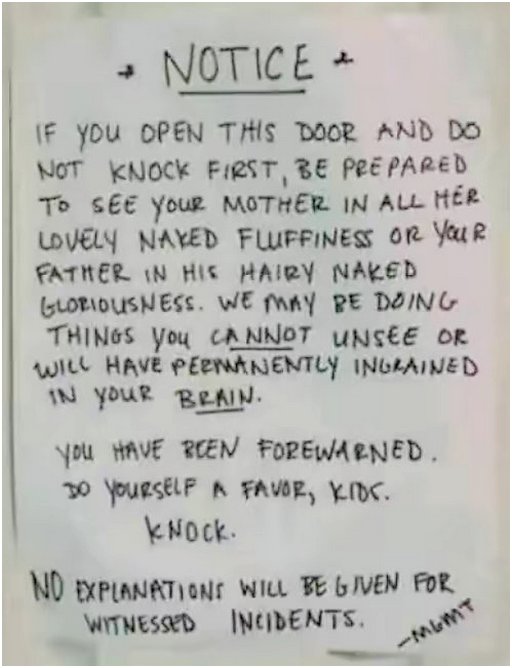 * NOTICE *
IF YOU OPEN THIS DOOR AND DO
NOT KNOCK FIRST, BE PREPARED
TO SEE YOUR MOTHER IN ALL HER
LOVELY NAKED FLUFFINESS OR YOUR
FATHER IN HIS HAIRY NAKED
GLORIOUSNESS. WE MAY BE DOING
THINGS YOU CANNOT UNSEE OR
WILL HAVE PERMANENTLY INGRAINED
IN YOUR BRAIN.
YOU HAVE BEEN FOREWARNED.
DO YOURSELF A FAVOR, KIDS.
KNOCK.
NO EXPLANATIONS WILL BE GIVEN FOR
WITNESSED INCIDENTS.
-MGMT